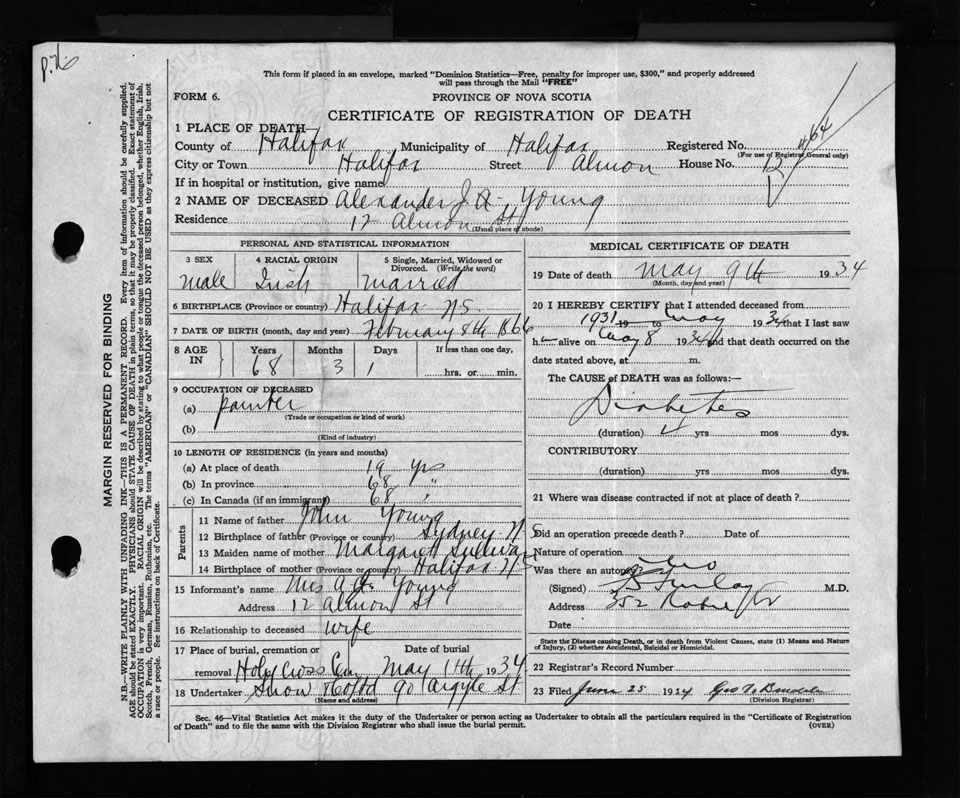 P.76
This form if placed in an envelope, marked "Dominion Statistics—Free, penalty for improper use, $300," and properly addressed
will pass through the Mail "FREE"
FORM 6.
PROVINCE OF NOVA SCOTIA
CERTIFICATE OF REGISTRATION OF DEATH
1 PLACE OF DEATH—
County of Halifax Municipality of Halifax Registered No. 464
(For use of Registrar General only)
City or Town Halifax Street Almon House No. 12
If in hospital or institution, give name
2 NAME OF DECEASED Alexander J. A. Young
Residence 12 Almon St
(Usual place of abode)
PERSONAL AND STATISTICAL INFORMATION
3 SEX 4 RACIAL ORIGIN 5 Single, Married, Widowed or
Divorced. (Write the word)
Male Irish Married
6 BIRTHPLACE (Province or country) Halifax N.S.
7 DATE OF BIRTH (month, day and year) February 8th 1866
8 AGE IN Years Months Days If less than one day,
68 3 1 hrs. or min.
9 OCCUPATION OF DECEASED
(a) painter
(Trade or occupation or kind of work)
(b)
(Kind of industry)
10 LENGTH OF RESIDENCE (in years and months)
(a) At place of death 19 yrs
(b) In province 68 "
(c) In Canada (if an immigrant) 68 "
Parents
11 Name of father John Young
12 Birthplace of father (Province or country) Sydney N S
13 Maiden name of mother Margaret Sullivan
14 Birthplace of mother (Province or country) Halifax N S
15 Informant's name Mrs A Young
Address 12 Almon St
16 Relationship to deceased wife
17 Place of burial, cremation or Date of burial
removal Holy Cross Cem May 11th 1934
18 Undertaker Snow & Co Ltd 90 Argyle St
(Name and address)
MEDICAL CERTIFICATE OF DEATH
19 Date of death May 9th 1934
(Month, day and year)
20 I HEREBY CERTIFY that I attended deceased from
1931 19 to May 1934 that I last saw
h alive on May 8 1934 and that death occurred on the
date stated above, at m.
The CAUSE of DEATH was as follows:—
Diabetes
(duration) 4 yrs mos dys.
CONTRIBUTORY
(duration) yrs mos dys.
21 Where was disease contracted if not at place of death?
Did an operation precede death? Date of
Nature of operation
Was there an autopsy
(Signed) M.D.
Address 352 Robie
Date
State the Disease causing Death, or in death from Violent Causes, state (1) Means and Nature
of Injury, (2) whether Accidental, Suicidal or Homicidal.
22 Registrar's Record Number
23 Filed June 25 1934 Geo
(Division Registrar)
Sec. 46—Vital Statistics Act makes it the duty of the Undertaker or person acting as Undertaker to obtain all the particulars required in the "Certificate of Registration
of Death" and to file the same with the Division Registrar who shall issue the burial permit. (OVER)
MARGIN RESERVED FOR BINDING
N.B.—WRITE PLAINLY WITH UNFADING INK—THIS IS A PERMANENT RECORD. Every item of information should be carefully supplied.
AGE should be stated EXACTLY. PHYSICIANS should STATE CAUSE OF DEATH in plain terms, so that it may be properly classified. Exact statement of
OCCUPATION is very important. RACIAL ORIGIN will be described by stating to what people or tongue the deceased person belonged, whether English, Irish,
Scotch, French, German, Russian, Ruthenian, etc. The terms "AMERICAN" or "CANADIAN" SHOULD NOT BE USED as they express citizenship but not
a race or people. See instructions on back of Certificate.